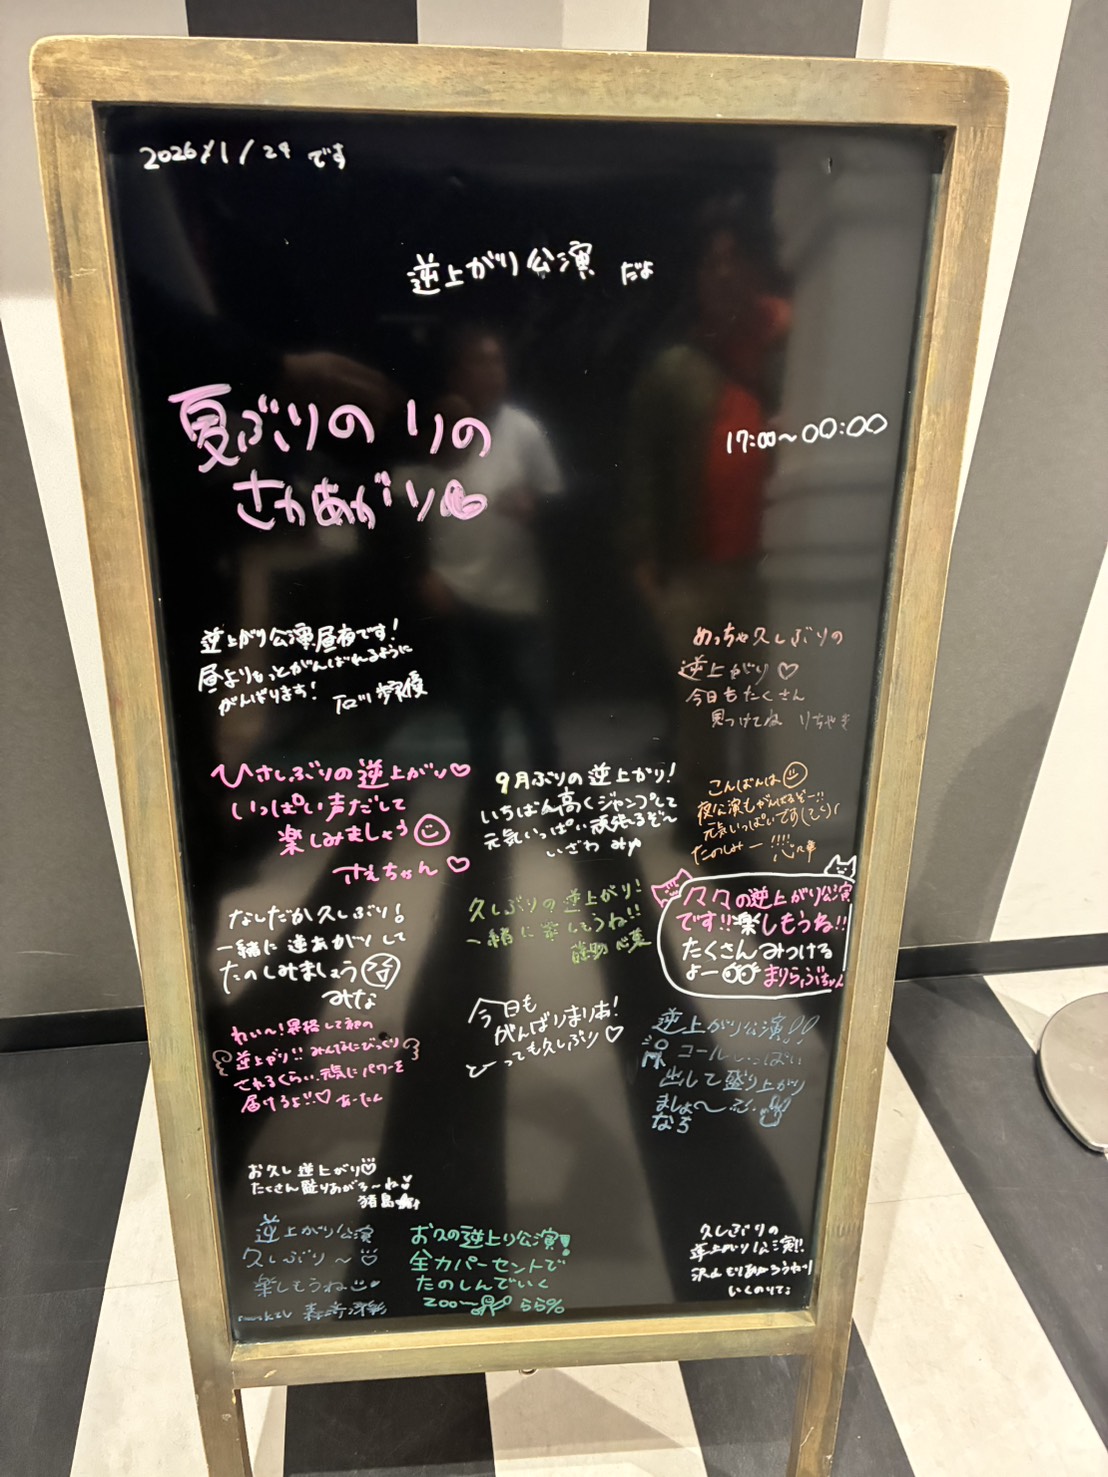 2026/1/24 です
逆上がり公演 だよ
夏ぶりの りの
さかあがり
17:00~00:00
逆上がり公演昼夜です!
昼よりもっとがんばれるように
がんばります! 石川 優
めっちゃ久しぶりの
逆上がり♡
今日もたくさん
見つけてね りちゃき
ひさしぶりの逆上がり♡
いっぱい声だして
楽しみましょう
さえちゃん♡
9月ぶりの逆上がり!
いちばん高くジャンプして
元気いっぱい頑張るぞ〜
いざわ みゆ
こんばんは
夜公演もがんばるぞー!!
元気いっぱいです
たのしみー!!!!
なんだか久しぶり!
一緒に逆あがりして
たのしみましょう
みな
久しぶりの逆上がり!
一緒に楽しもうね!!
久々の逆上がり公演
です!!楽しもうね!!
たくさんみつける
よー まりらぶちゃん
わぃ〜!昇格して初の
逆上がり!!みんなにびっくり
されるくらい元気にパワーを
届けるよ!!♡ あーたん
今日も
がんばりまりあ!
とっても久しぶり♡
逆上がり公演!!
コールいっぱい
出して盛り上がり
ましょ〜
なち
お久し逆上がり♡
たくさん盛りあがろ〜ね
猪島
逆上がり公演
久しぶり〜♡
楽しもうね
お久の逆上り公演!
全力パーセントで
たのしんでいく
zoo〜 らら%
久しぶりの
逆上がり公演!!
いくのりてぃ